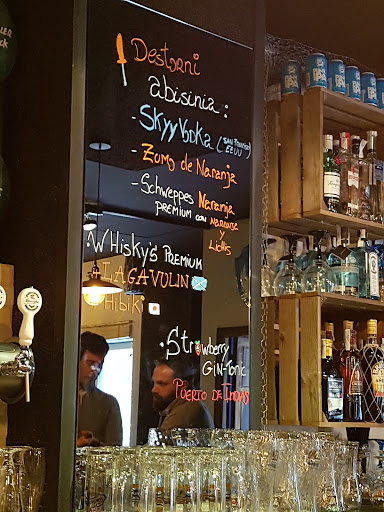 Destorni
abisinia:
- Skyy Vodka (SAN FRANCISCO
EEUU)
- Zumo de Naranja
- Schweppes Naranja
PREMIUM CON NARANJA
Lichis
· Whisky's PREMIUM
LAGAVULIN
Hibiki
· Strawberry
GIN-Tonic
PUERTO DE INDIAS